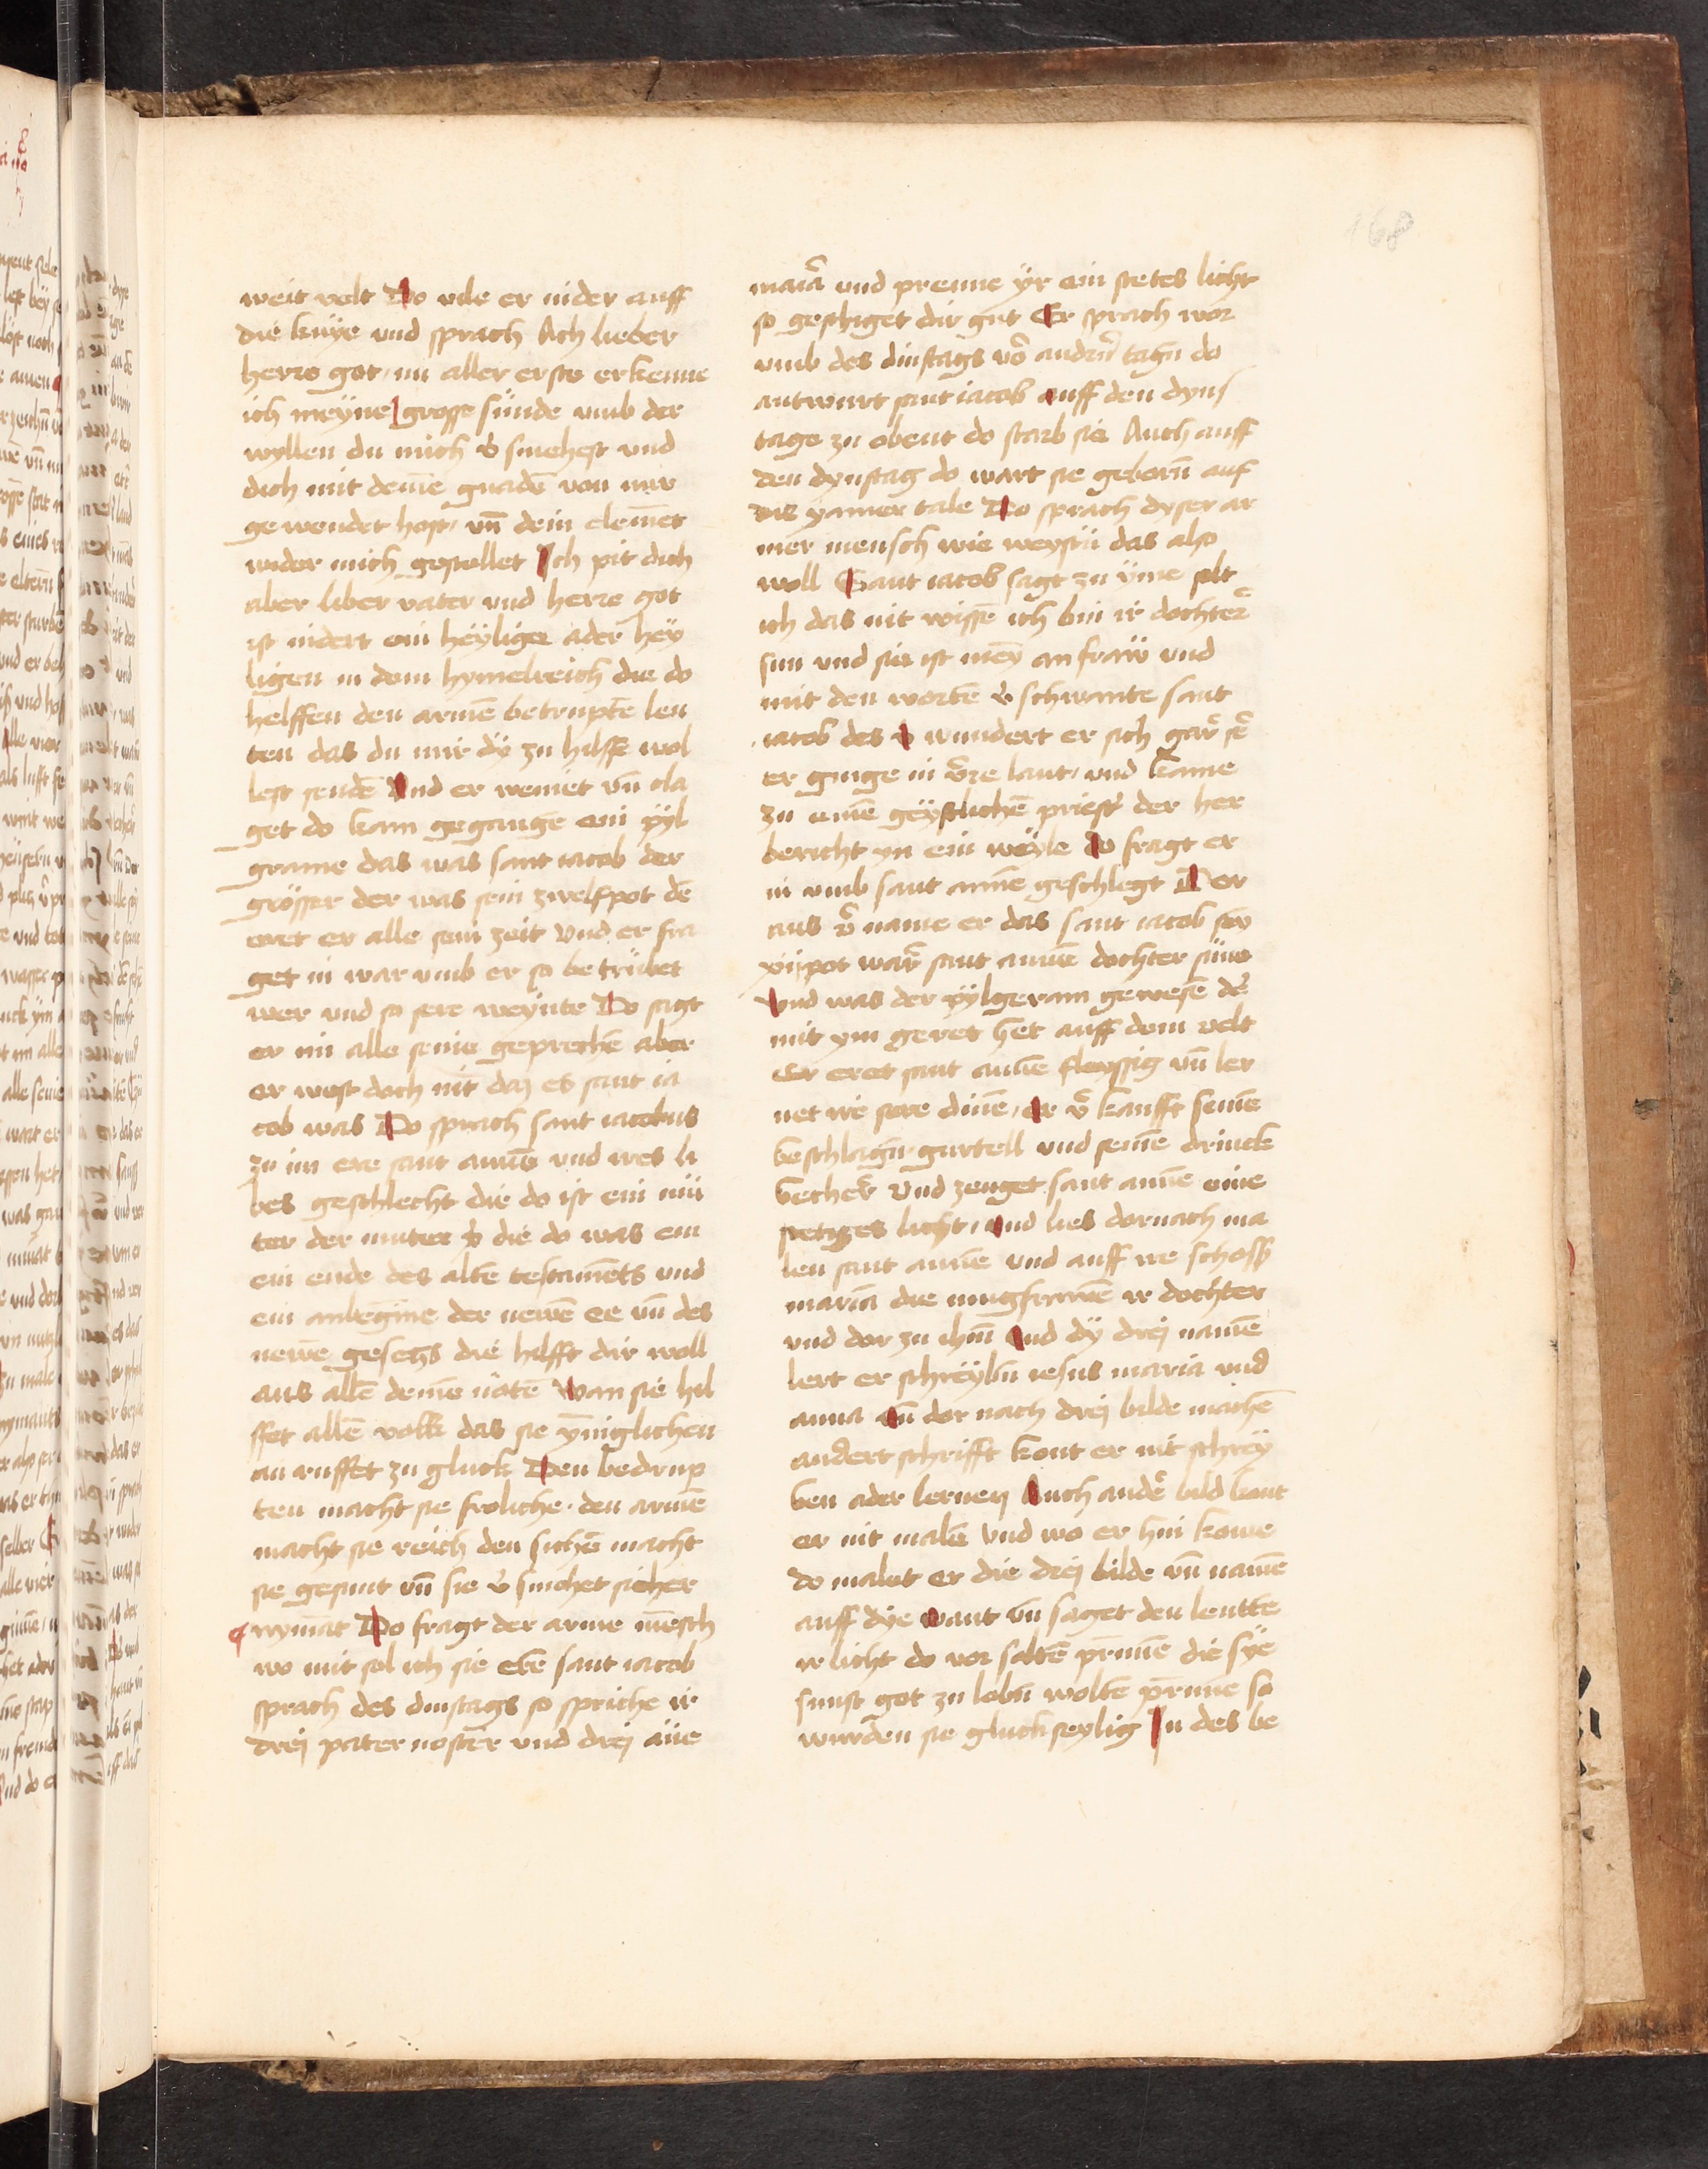 168
weit velt Do vile er nider auff
die knÿe vnd sprach Ach lieber
herre got, nu aller erste erkenne
ich meyne grosse sünde vmb der
wyllen du mich v̄ smehest vnd
dich mit deine͂ gnade͂ von mir
gewendet host, vn̄ dein eleme͂t
wider mich gestellet Ich pit dich
aber liber vater vnd herre got
ist nidert ein heÿliger ader heÿ
ligen in dem hymelreich die do
helffen den arme͂ betrupte͂ leu
ten das du mir dÿ zu hilff wol
lest sende͂ Vnd er weinet vn̄ cla
get do kam gegange͂ ein pÿl
grame das was sant iacob der
grösser der was sein zwelfpot de͂
eret er alle sein zeit Vnd er fra
get in war vmb er so betrübet
wer vnd so sere weÿnte Do sagt
er im alle seine gepreche͂ aber
er west doch nit daz es sant ia
cob was Do sprach sant iacobus
zu im ere sant anne͂ vnd wes li
bes geschlecht die do ist ein mü
ter der muter die do was ein
ein ende des alte͂ testame͂ts vnd
ein anbegine der newe͂ ee vn̄ des
newe͂ gesetzs die hilfft dir woll
aus alle͂ deine͂ note͂ Wan sie hil
ffet alle͂ volk das sie ÿniglichen
an ruffet zu gluck Den bedrup
ten macht sie froliche. den arme͂
macht sie reich den siche͂ macht
sie gesunt vn̄ sie v̄ smehet sicher
nyma͂t Do fragt der arme me͂sch
wo mit sol ich sie ere͂ sant iacob
sprach des dinstags so spriche ir
drei pater noster vnd drei aue
maria vnd prenne ÿr ein stetes licht
so geschiget dir gut Er sprach wor
vmb des dinstags vor andern̄ tagn̄ do
antwurt sant iacob auff den dyns
tage zu obent do starb sie Auch auff
den dynstag do wart sie geborn̄ auf
dis yamer tale Do sprach dyser ar
mer mensch wie weystu das also
woll Sant iacob sagt zu ÿme solt
ich das nit wisse͂ ich bin ir dochter
sun vnd sie ist meÿ an fraw vnd
mit den worte͂ v̄ schwante sant
iacob des v̄ wundert er sich gar ser
er ginge in v̄re lant, vnd kame
zu eine͂ geÿstliche͂ priest̄ der her
bericht yn ein weÿle do fragt er
in vmb sant anne͂ geschlegt Dor
aus v̄ name er das sant iacob seÿ
xijpot war sant anne͂ dochter süne
Vnd was der pÿlgeram gewese͂ der
mit ym geret het auff dem velt
Er eret sant anne͂ fleyssig vn̄ ler
net ir sere dine͂, er v̄ kaufft seine͂
beschlagn̄ gurtell vnd seine͂ drinck
becher Vnd zeuget sant anne͂ eine
stetiges licht, vnd lies dornach ma
len sant anne͂ vnd auff ire schoss
maria die iungfrawe͂ ir dochter
vnd dor zu ihm̄ Vnd dÿ drei name͂
lert er schreÿbn̄ iesus maria vnd
anna vn̄ dor nach drei bilde mache͂
andert schrifft kont er nit schrey
ben ader lernen Auch ander bild kont
er nit male͂ Vnd wo er hin kome
do malet er die drei bilde vn̄ name͂
auff dÿe want vn̄ saget den leutte͂
ir licht do vor solte͂ prīne͂ die sÿe
sunst got zu lobn̄ wolte͂ prīne͂ so
wurden sie gluckseylig In des be